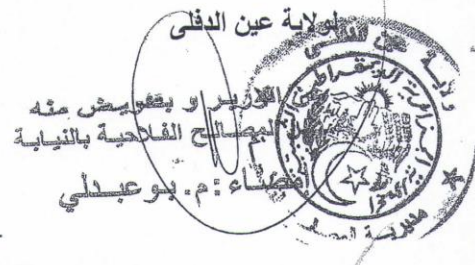 لولاية عين الدفلى
عن الوزير و بتفويض منه
المصالح الفلاحية بالنيابة
إمضاء : م. بوعبدلي
ولاية عين الدفلى
مديرية المصالح